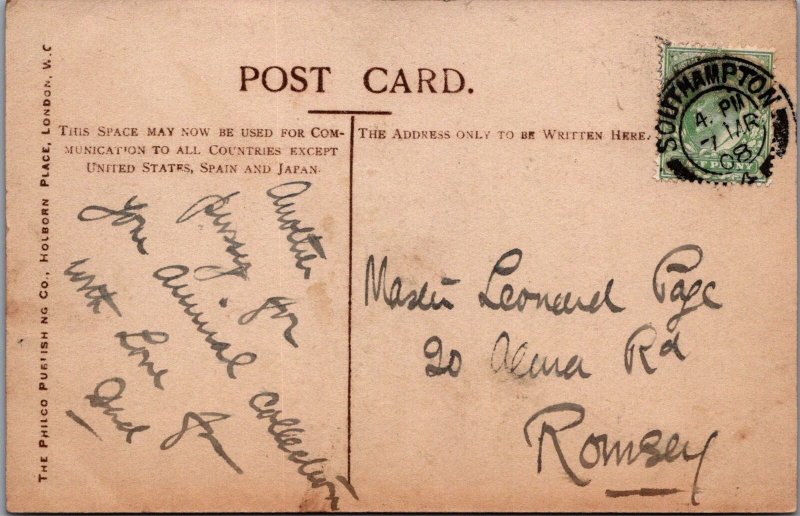 POST CARD.
THIS SPACE MAY NOW BE USED FOR COM-
MUNICATION TO ALL COUNTRIES EXCEPT
UNITED STATES, SPAIN AND JAPAN.
THE ADDRESS ONLY TO BE WRITTEN HERE.
THE PHILCO PUBLISHING CO., HOLBORN PLACE, LONDON, W.C
SOUTHAMPTON
4. PM
7 MR
08
Another
pussy for
your animal collection
with Love fr
Dad
Master Leonard Page
20 Alma Rd
Romsey